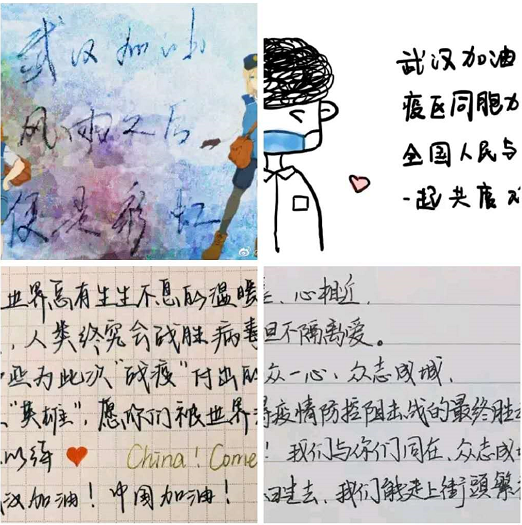 武汉加油
风雨之后
便是彩虹
武汉加油
疫区同胞加
全国人民与
一起共度
世界总有生生不息的温暖
，人类终究会战胜病毒
些为此次“战疫”付出的
“英雄”，愿你们被世界
以绛 China! Come
汉加油！中国加油！
心相近，
但不隔离爱。
众一心，众志成城，
得疫情防控阻击战的最终胜
！我们与你们同在，众志成
回过去，我们能走上街頭繁